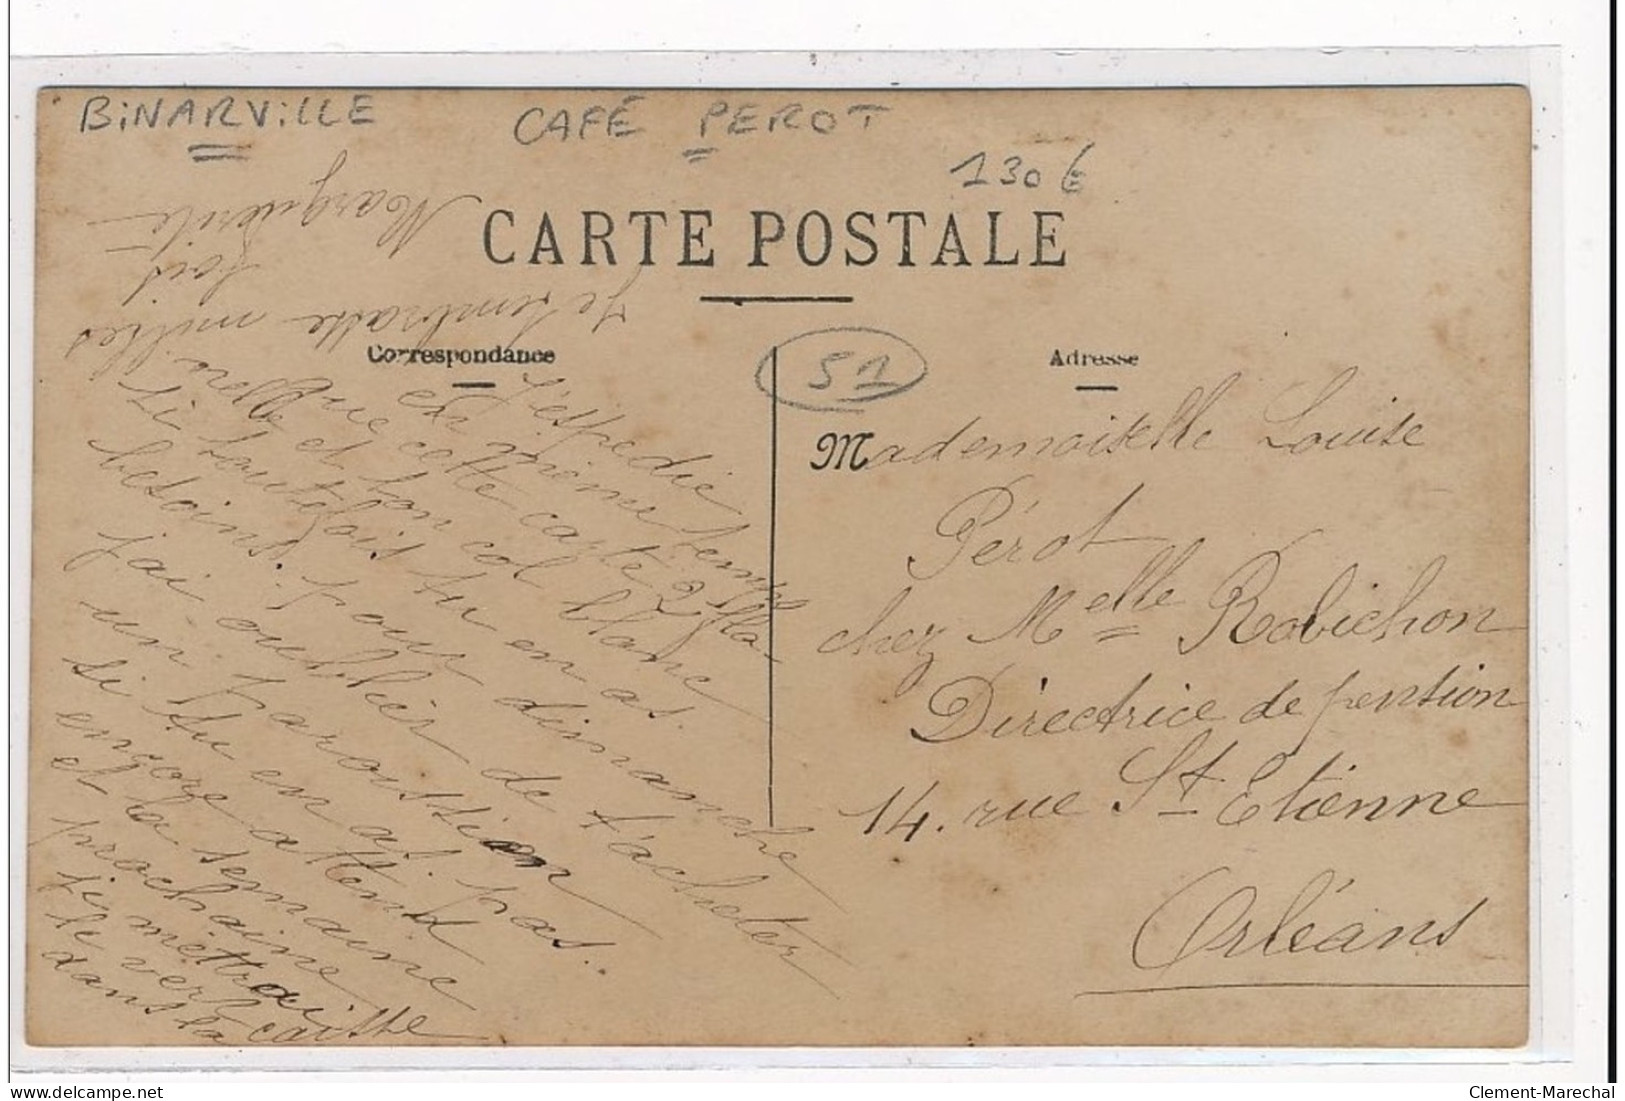 BiNARViLLE
CAFÉ PEROT
130 €
CARTE POSTALE
Correspondance
Adresse
51
J'expédie
en même temps
que cette carte ta flanelle et ton col blanc
si toutefois tu en as
besoins. Pour dimanche
j'ai oublier de t'acheter
un Parossion
si tu en a pas..
encore attend
et la semaine
prochaine
je mettrai
le vers
dans ta caisse
Je t'embrasse milles
fois
Marguerite
Mademoiselle Louise
Pérot
chez Melle Robichon
Directrice de pension
14. rue St Etienne
Orléans
Clement-Marechal